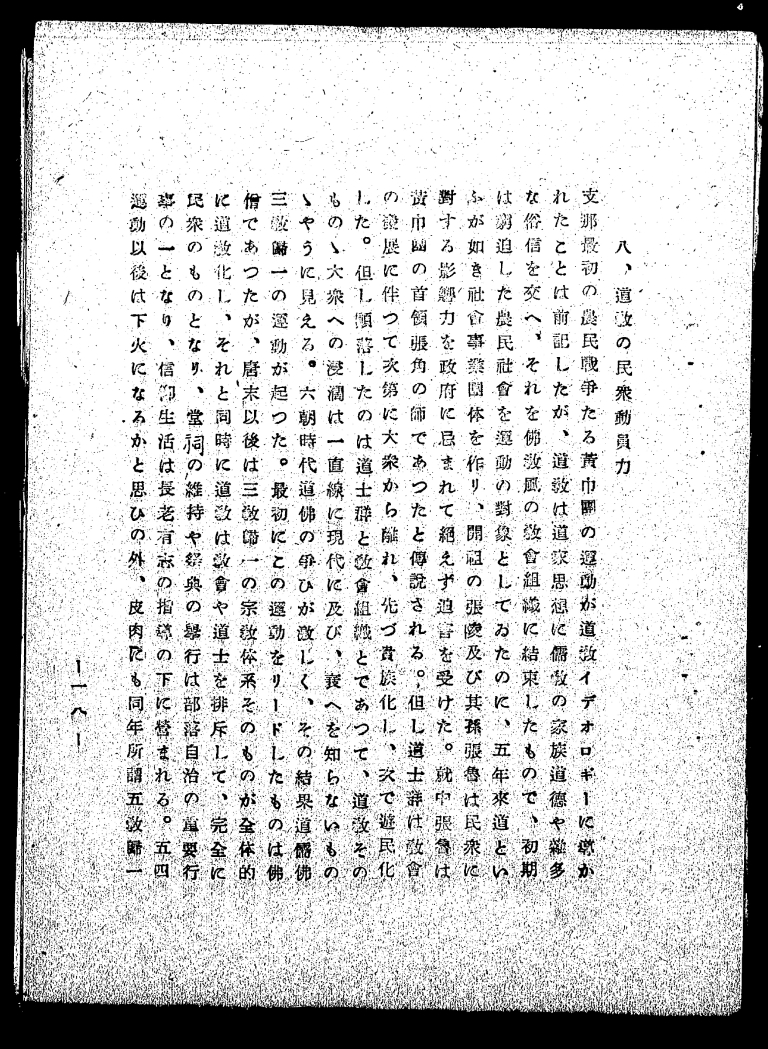 八、道敎の民衆動員力
支那最初の農民戰爭たる黃巾團の運動が道敎イデオロギーに導か
れたことは前記したが、道敎は道家思想に儒敎の家族道德や雜多
な俗信を交へ、それを佛敎風の敎會組織に結束したもので、初期
は窮迫した農民社會を運動の對象としてゐたのに、五年來道とい
ふが如き社會事業團体を作り、開祖の張陵及び其孫張魯は民衆に
對する影響力を政府に忌まれて絕えず迫害を受けた。就中張魯は
黃巾團の首領張角の師であつたと傳說される。但し道士群は敎會
の發展に伴つて次第に大衆から離れ、先づ貴族化し、次で遊民化
した。但し頽落したのは道士群と敎會組織とであつて、道敎その
ものゝ大衆への浸潤は一直線に現代に及び、衰へを知らないもの
ゝやうに見える。六朝時代道佛の爭ひが激しく、その結果道儒佛
三敎歸一の運動が起つた。最初にこの運動をリードしたものは佛
僧であつたが、唐末以後は三敎歸一の宗敎体系そのものが全体的
に道敎化し、それと同時に道敎は敎會や道士を排斥して、完全に
民衆のものとなり、堂祠の維持や祭典の擧行は部落自治の重要行
事の一となり、信仰生活は長老有志の指導の下に營まれる。五四
運動以後は下火になるかと思ひの外、皮肉にも同年所謂五敎歸一
―一八―